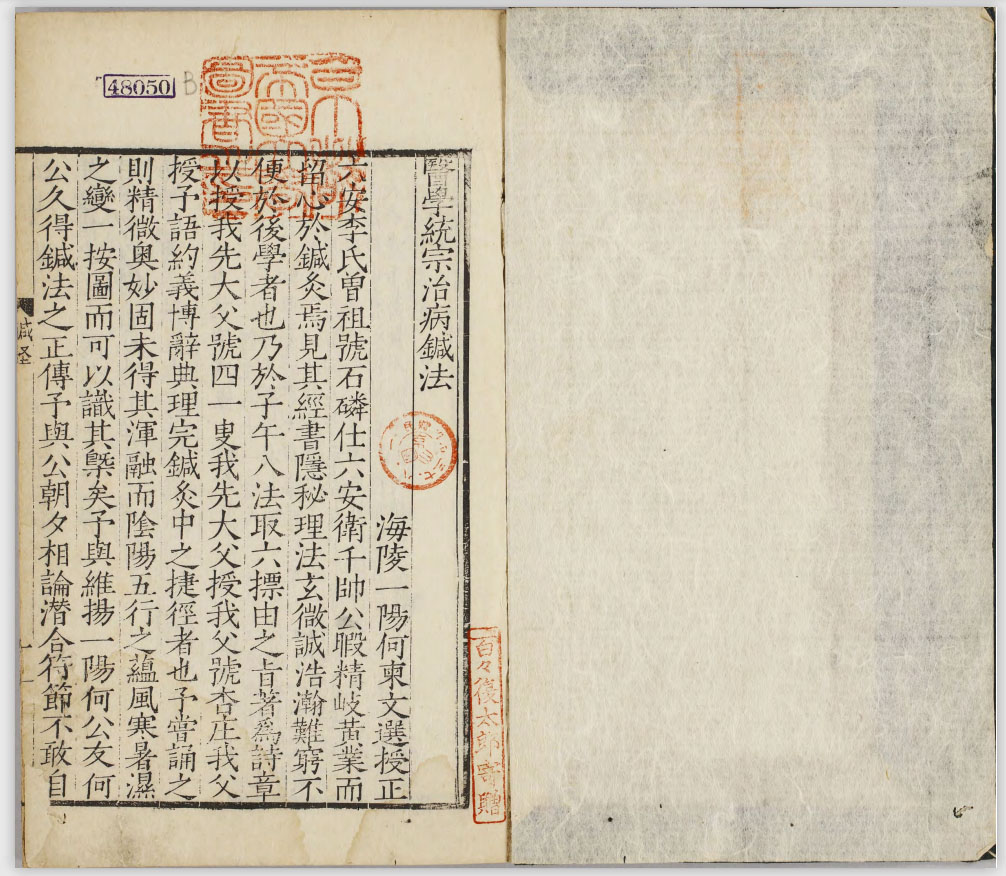 48050
B
醫學統宗治病鍼法
海陵一陽何柬文選授正
六安李氏曾祖號石磷仕六安衛千帥公暇精岐黃業而
留心於鍼灸焉見其經書隱秘理法玄微誠浩瀚難窮不
便於後學者也乃於子午八法取六摽由之㫖著爲詩章
以授我先大父號四一叟我先大父授我父號杏庄我父
授予語約義博辭典理完鍼灸中之捷徑者也予甞誦之
則精微奥妙固未得其渾融而陰陽五行之蘊風寒暑濕
之變一按圖而可以識其槩矣予與維揚一陽何公友何
公久得鍼法之正傳予與公朝夕相論潜合符節不敢自
百々復太郎寄贈